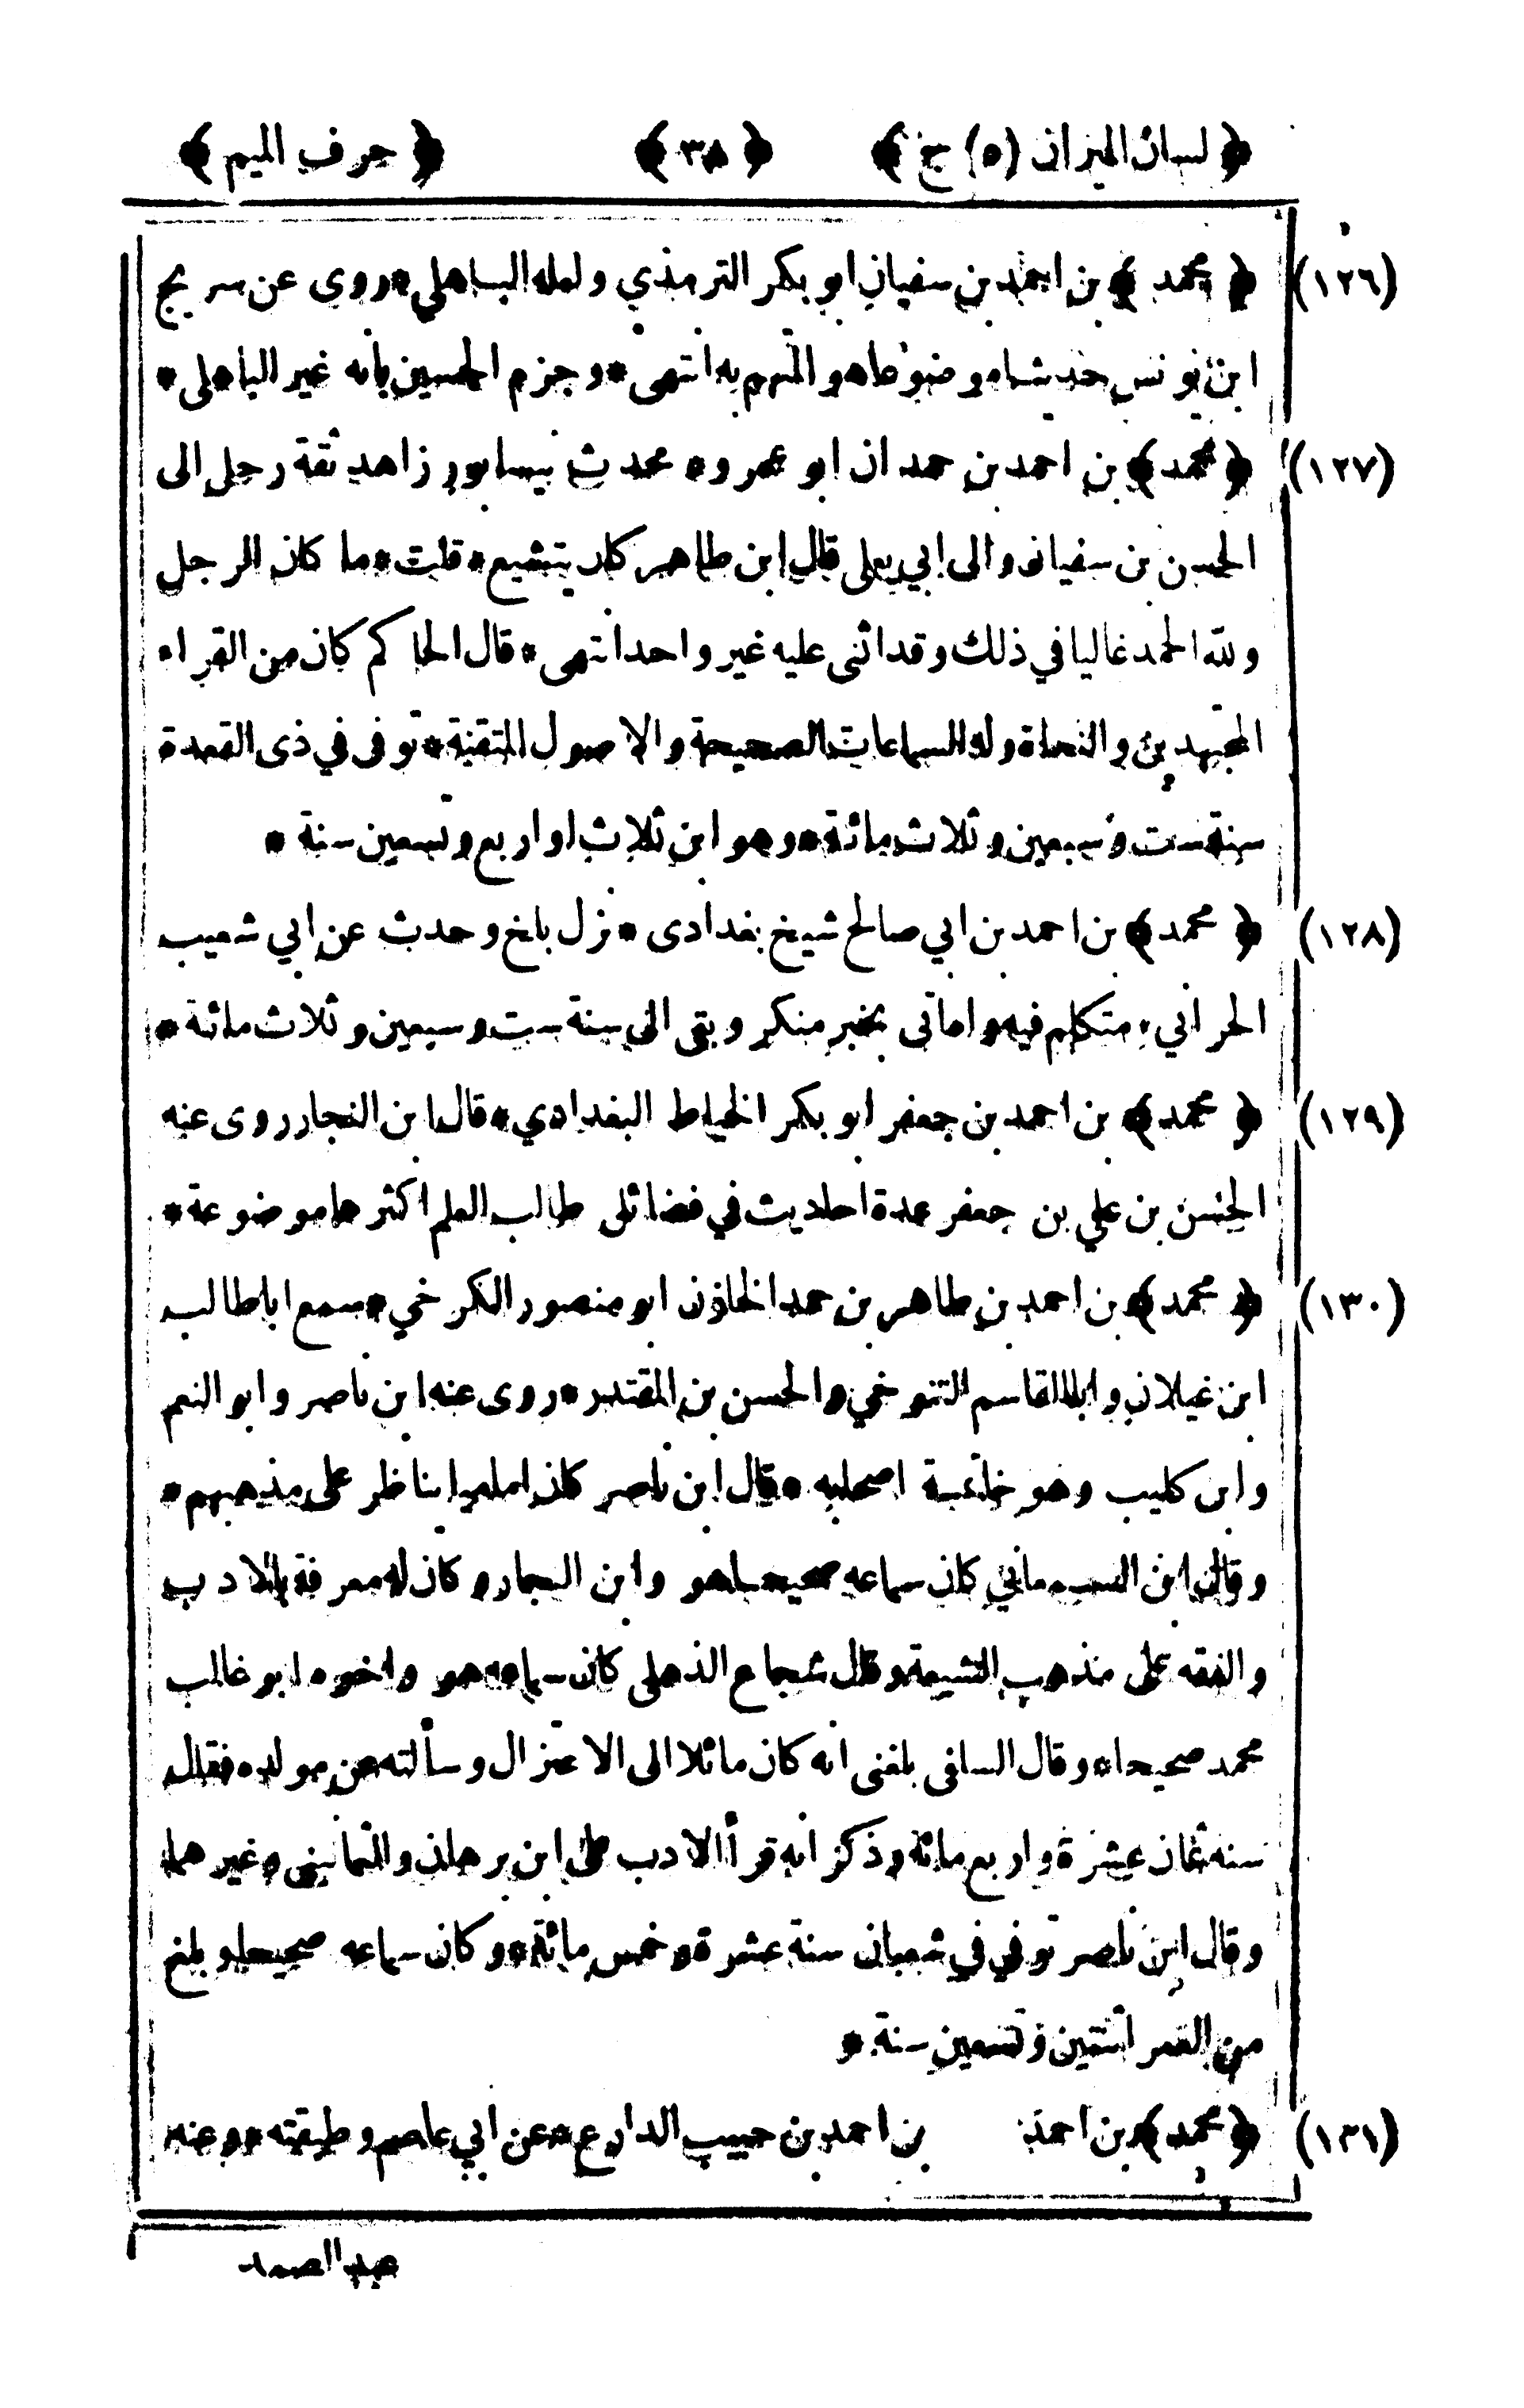 ﴿ لسان الميزان (٥) ج ﴾ ﴿ ٣٨ ﴾ ﴿ حرف الميم ﴾
(١٢٦) ﴿ محمد ﴾ بن احمد بن سفيان ابو بكر الترمذي ولعله الباهلي * روى عن سريج
ابن يونس حديثا موضوعا هو المتهم به انتهى * وجزم الحسين بأنه غير الباهلى *
(١٢٧) ﴿ محمد ﴾ بن احمد بن حمدان ابو عمرو * محدث نيسابور زاهد ثقة رحل الى
الحسن بن سفيان والى ابي يعلى قال ابن طاهر كان يتشيع * قلت * ما كان الرجل
ولله الحمد غاليا في ذلك وقد اثنى عليه غير واحد انتهى * قال الحاكم كان من القراء
المجتهدين والنحاة وله السماعات الصحيحة والاصول المتقنة * توفى في ذى القعدة
سنة ست وسبعين وثلاث مائة * وهو ابن ثلاث او اربع وتسعين سنة *
(١٢٨) ﴿ محمد ﴾ بن احمد بن ابي صالح شيخ بغدادى * نزل بلخ وحدث عن ابي شعيب
الحراني * متكلم فيه واتى بخبر منكر وبقى الى سنة ست وسبعين وثلاث مائة *
(١٢٩) ﴿ محمد ﴾ بن احمد بن جعفر ابو بكر الخياط البغدادي * قال ابن النجار روى عنه
الحسن بن علي بن جعفر عدة احاديث في فضائل طالب العلم اكثرها موضوعة *
(١٣٠) ﴿ محمد ﴾ بن احمد بن طاهر بن حمد الخازن ابو منصور الكرخي * سمع اباطالب
ابن غيلان وابا القاسم التنوخي والحسن بن المقتدر * روى عنه ابن ناصر وابو النعم
وابن كليب وهو خاتمة اصحابه * قال ابن ناصر كان اماميا يناظر على مذهبهم *
وقال ابن السمعاني كان سماعه صحيحا هو وابن النجار وكان له معرفة بالادب
والفقه على مذهب الشيعة وقال شجاع الذهلى كان سماعه هو واخوه ابو غالب
محمد صحيحا * وقال السلفى بلغنى انه كان مائلا الى الاعتزال وسألته عن مولده فقال
سنه ثمان عشرة واربع مائة وذكر انه قرأ الادب على ابن برهان والثمانينى وغيرهما
وقال ابن ناصر توفي في شعبان سنة عشرة وخمس مائة * وكان سماعه صحيحا وبلغ
من العمر اثنتين وتسعين سنة *
(١٣١) ﴿ محمد ﴾ بن احمد بن احمد بن حبيب الدارع * عن ابي عاصم وطبقته * وعنه
عبد الصمد